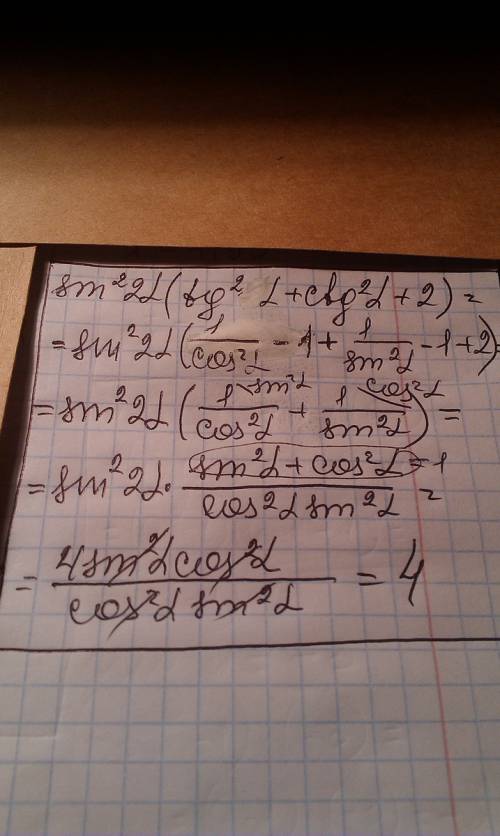 sin²2α(tg²α+ctg²α+2)=
=sin²2α(1/cos²α-1+1/sin²α-1+2)=
=sin²2α(1\sin²α/cos²α+1\cos²α/sin²α)=
=sin²2α·(sin²α+cos²α=1)/(cos²α sin²α)=
=4sin²αcos²α/(cos²α sin²α)=4